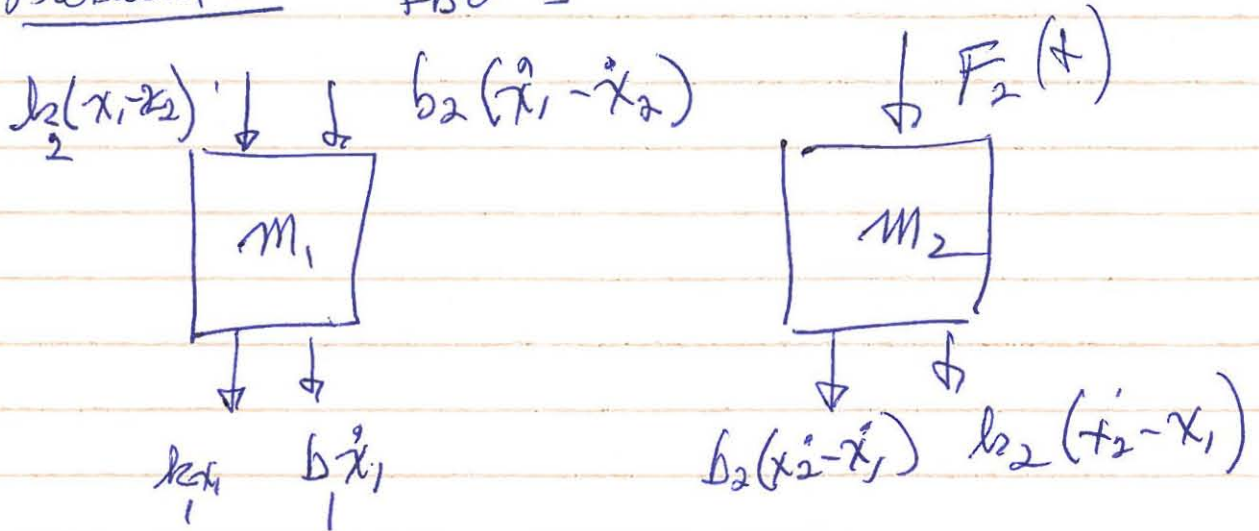 k₂(x₁-x₂) b₂(ẋ₁-ẋ₂) F₂(t)
m₁ m₂
k₁x₁ b₁ẋ₁ b₂(ẋ₂-ẋ₁) k₂(x₂-x₁)